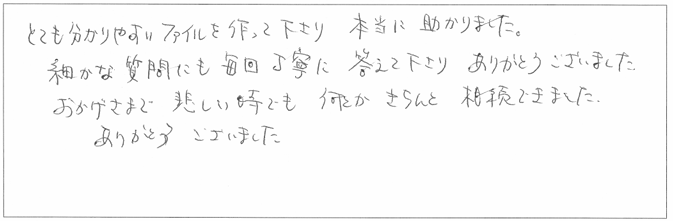 とても分かりやすいファイルを作って下さり 本当に助かりました。
細かな質問にも毎回丁寧に答えて下さり ありがとうございました
おかげさまで 悲しい時でも 何とか きちんと 相続できました.
ありがとう ございました